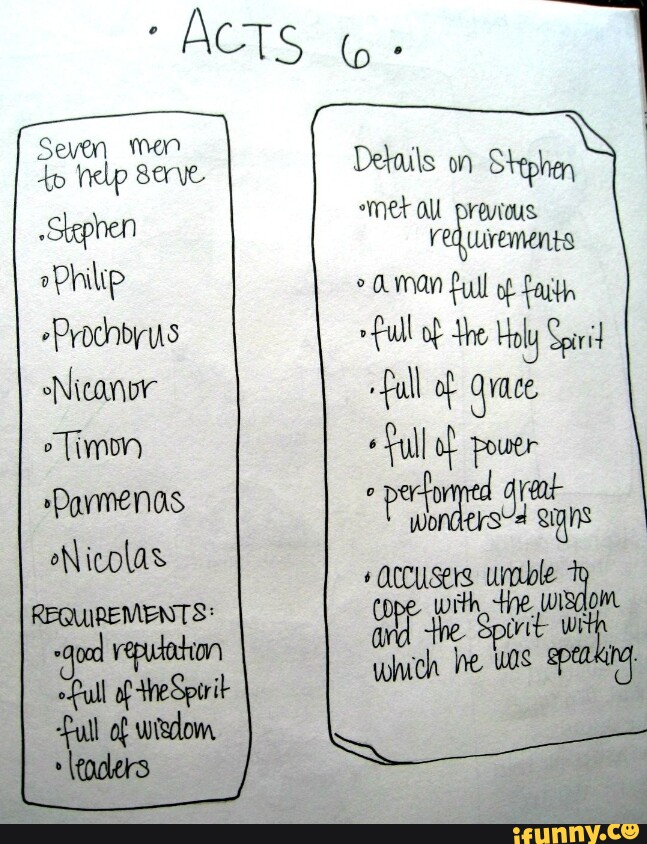 • ACTS 6 •
Seven men
to help serve
• Stephen
• Philip
• Prochorus
• Nicanor
• Timon
• Parmenas
• Nicolas
REQUIREMENTS:
• good reputation
• full of the Spirit
• full of wisdom
• leaders
Details on Stephen
• met all previous
requirements
• a man full of faith
• full of the Holy Spirit
• full of grace
• full of power
• performed great
wonders & signs
• accusers unable to
cope with the wisdom
and the Spirit with
which he was speaking.
ifunny.co